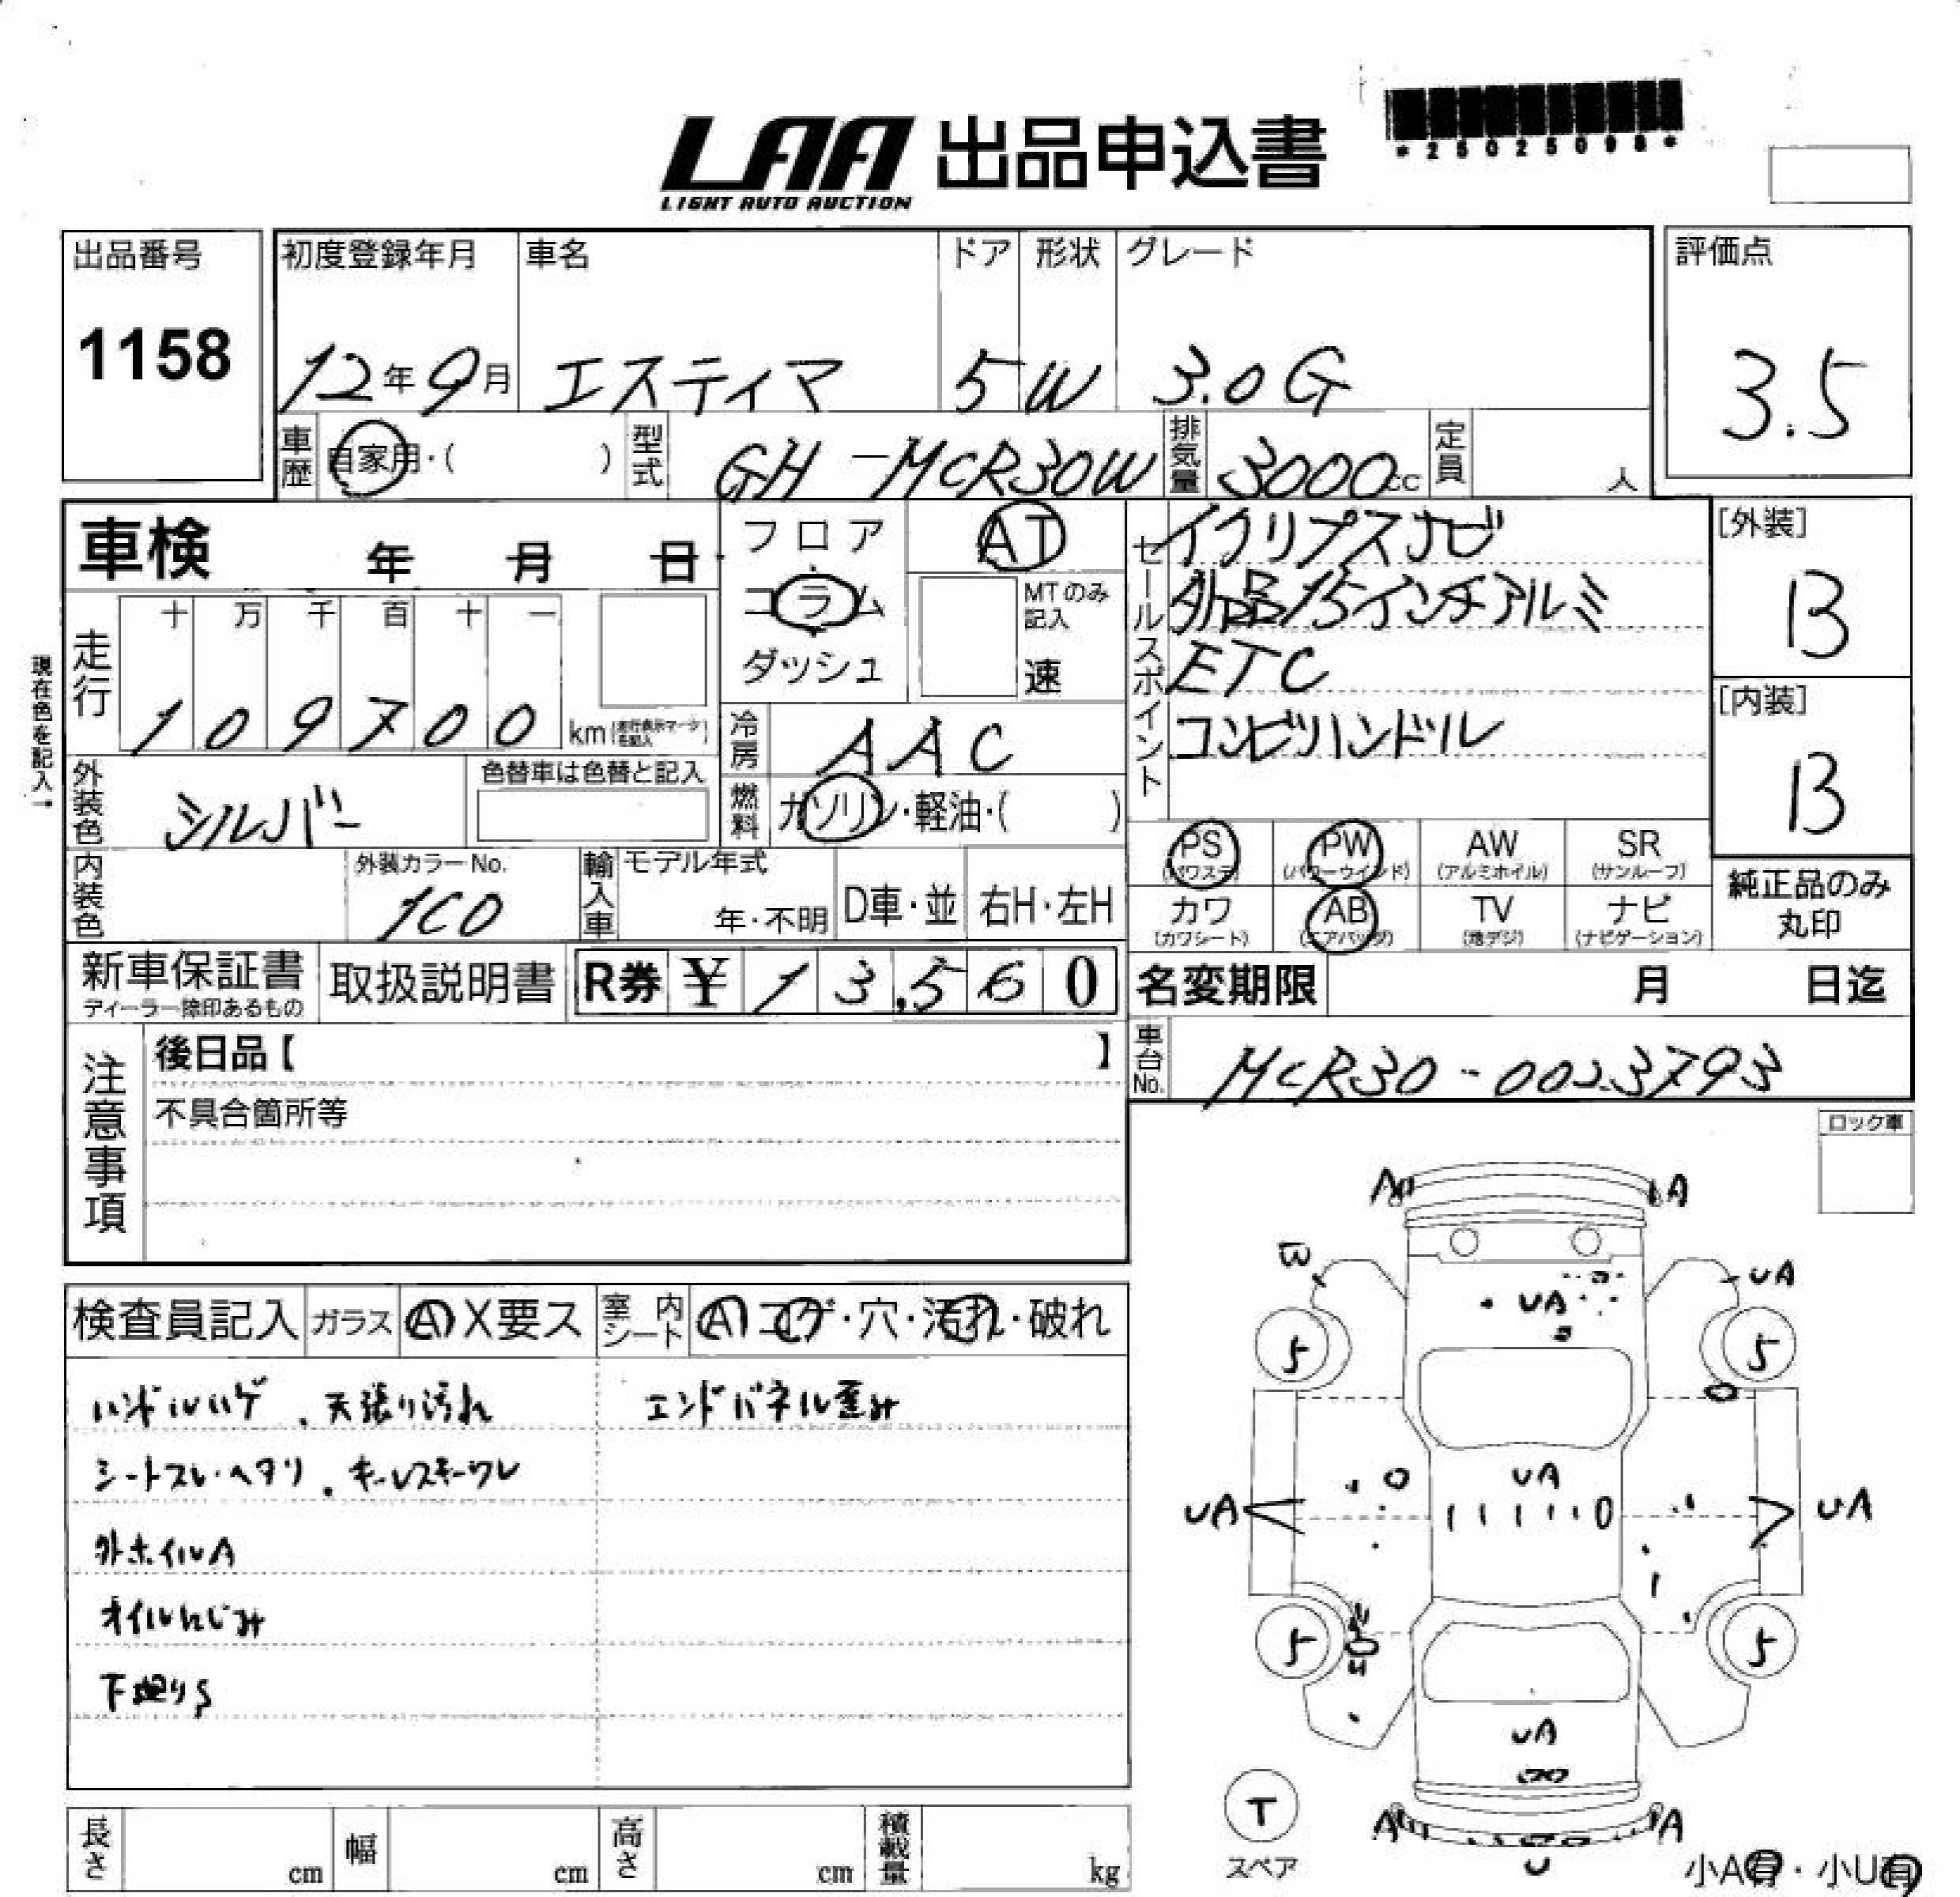 LAA 出品申込書
LIGHT AUTO AUCTION
*25025098*
出品番号
1158
初度登録年月 車名 ドア 形状 グレード
12年9月 エスティマ 5 W 3.0G
評価点
3.5
車歴 自家用・( ) 型式 GH-MCR30W 排気量 3000cc 定員 人
車検 年 月 日
フロア
コラム
ダッシュ
AT
MTのみ記入
速
セールスポイント
イクリプスナビ
外品15インチアルミ
ETC
コンビハンドル
[外装]
B
[内装]
B
現在色を記入→
走行
十 万 千 百 十 一
1 0 9 7 0 0 km (走行表示マークを記入)
冷房 AAC
外装色 シルバー 色替車は色替と記入
燃料 ガソリン・軽油・( )
PS (パワステ) PW (パワーウインド) AW (アルミホイル) SR (サンルーフ)
カワ (カワシート) AB (エアバッグ) TV (地デジ) ナビ (ナビゲーション)
純正品のみ
丸印
内装色 外装カラーNo. 1C0 輸入車 モデル年式 年・不明 D車・並 右H・左H
新車保証書
ディーラー捺印あるもの
取扱説明書 R券 ¥ 1 3,5 6 0
名変期限 月 日迄
車台No. MCR30-0023793
注意事項
後日品【 】
不具合箇所等
ロック車
検査員記入 ガラス A X要ス 室内シート A コゲ・穴・汚れ・破れ
ハンドルハゲ、天張り汚れ エンドパネル歪み
シートスレ・ヘタリ、キーレスキーワレ
外ホイルA
オイルにじみ
下廻りS
A A
W UA
UA
5 5
UA UA UA
5 5
UA
T
スペア
A A
U
小A有・小U有
長さ cm 幅 cm 高さ cm 積載量 kg